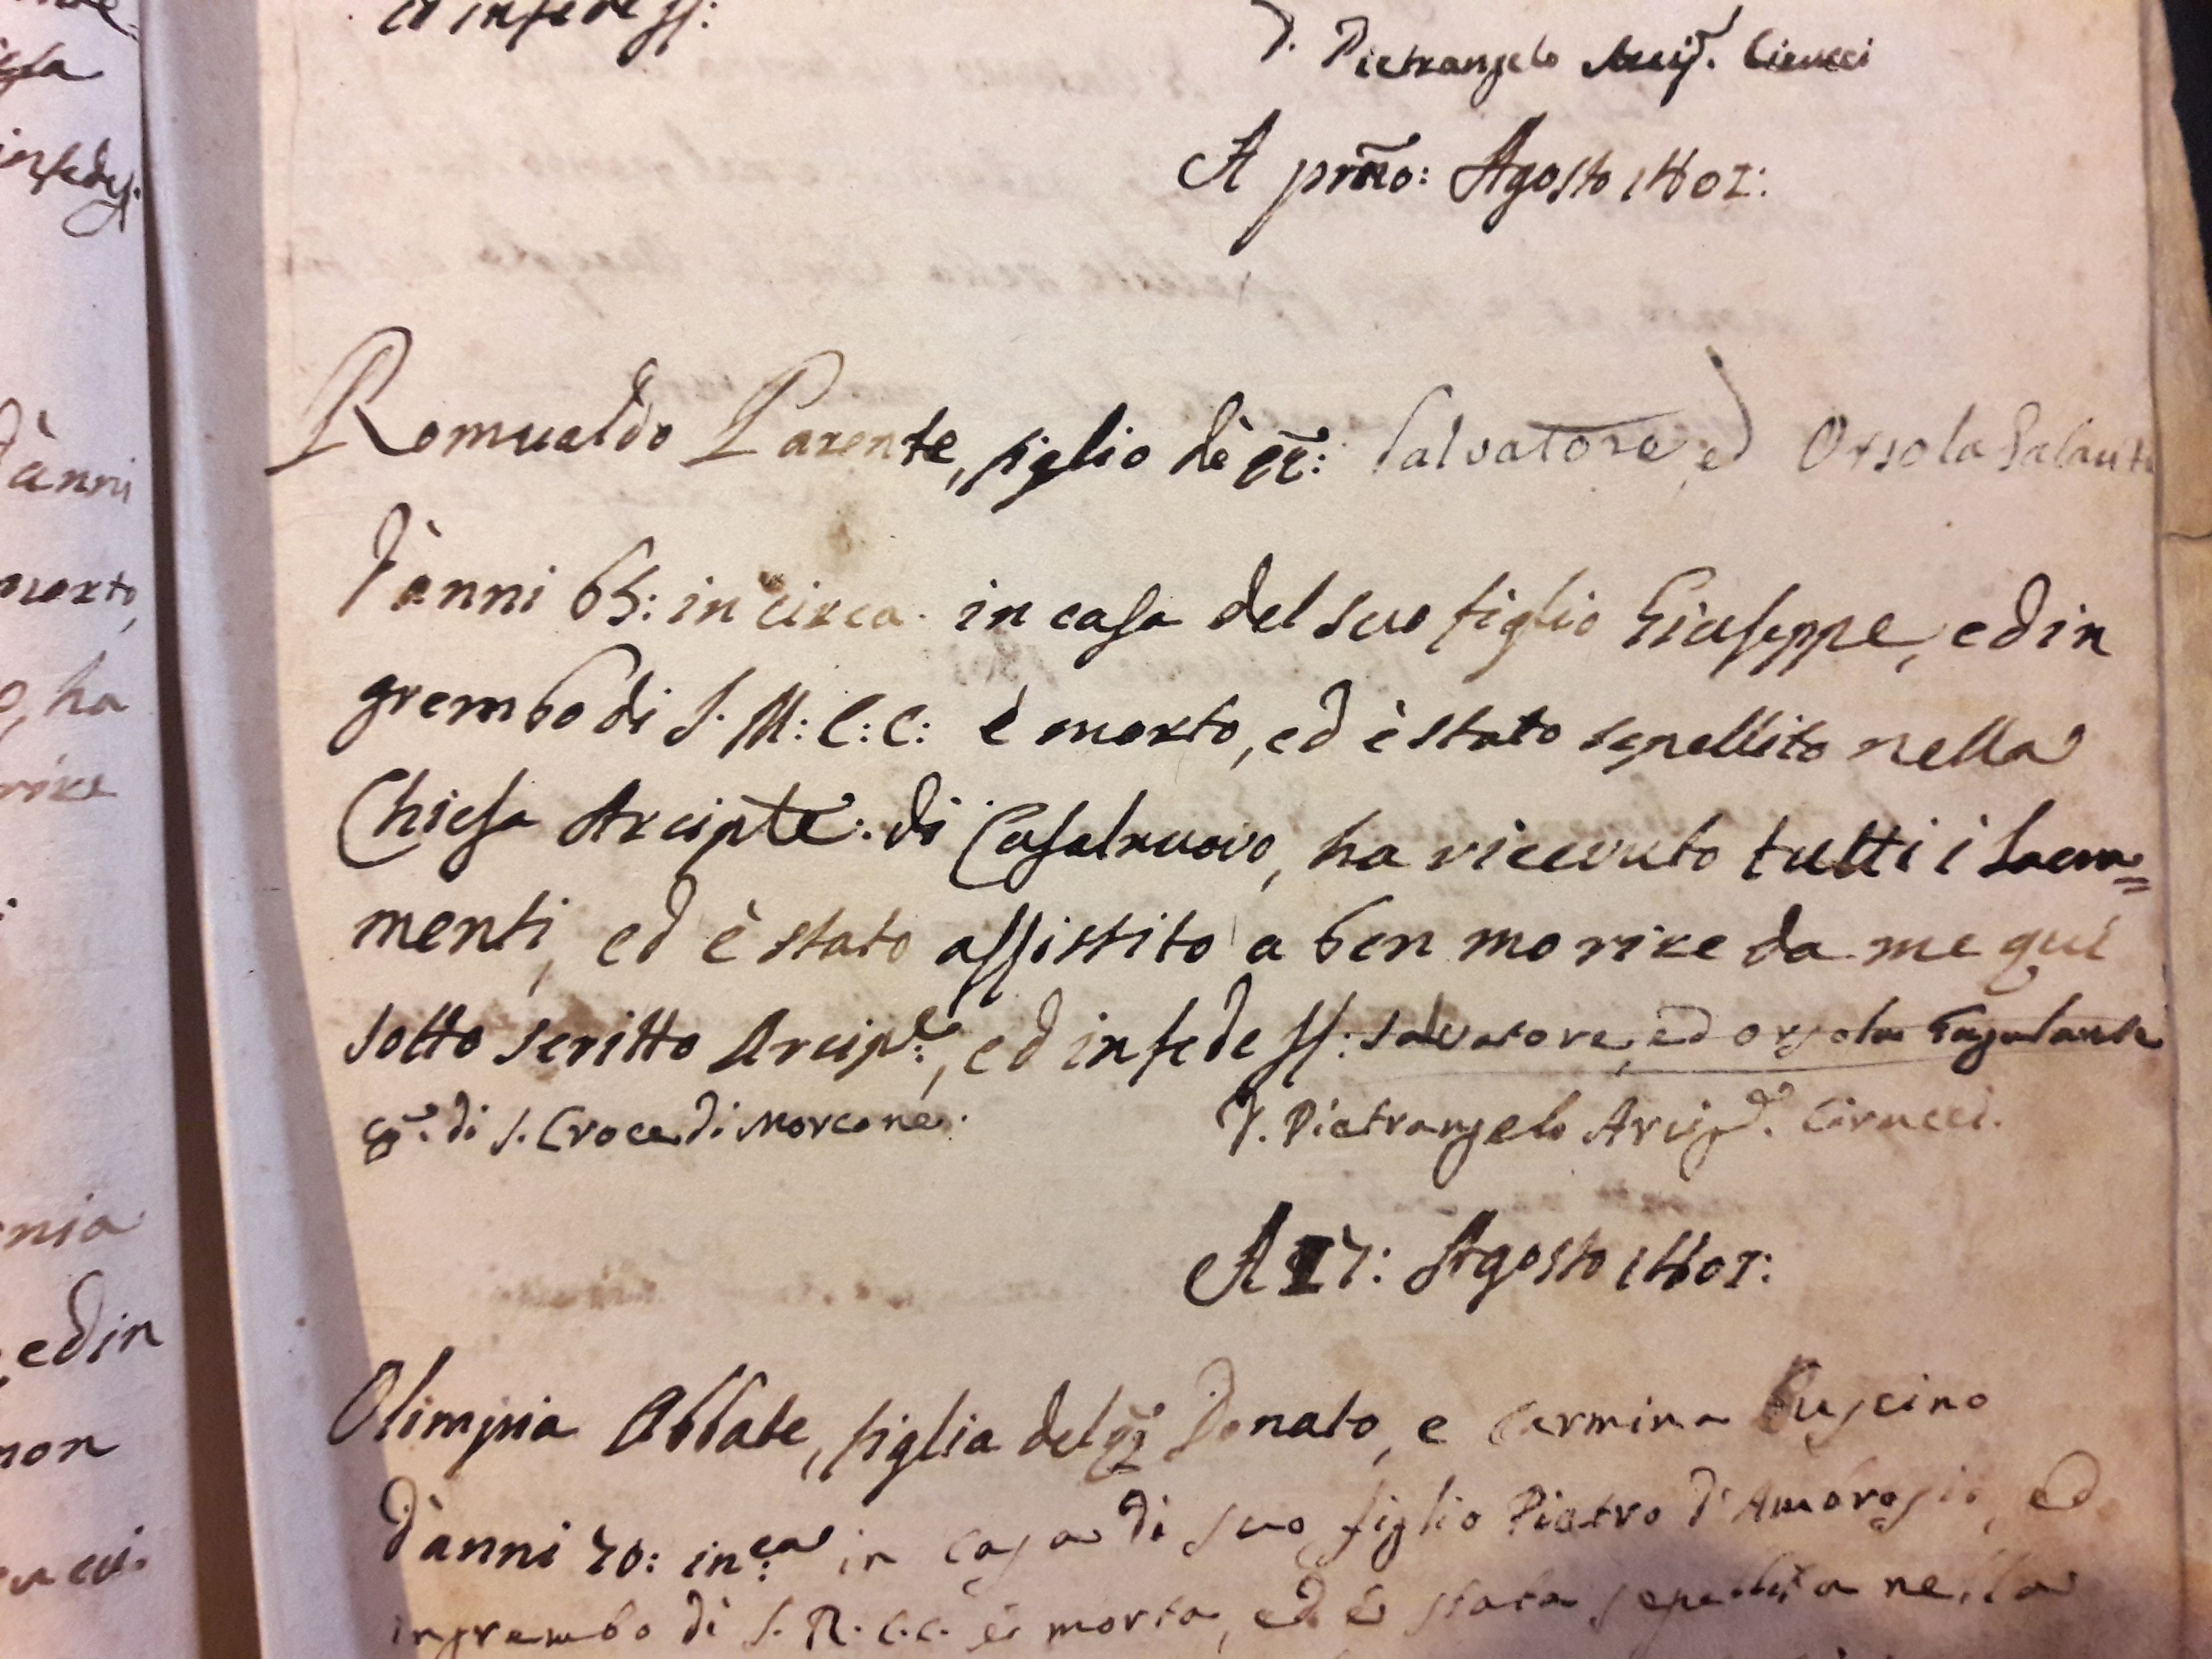 ed in fede ff:
D. Pietrangelo Arcip. Cirucci
A prmo: Agosto 1802:
Romualdo Parente, figlio dè qq: Salvatore, ed Orsola Galant
D'anni 65: in circa. in casa del suo figlio Giuseppe, ed in
grembo di S. M: C: C: è morto, ed è stato sepellito nella
Chiesa Arcipte: di Casalnuovo, ha ricevuto tutti i Sacra=
menti, ed è stato assistito a ben morire da me qui
sotto scritto Arcipe:, ed in fede ff: Salvatore, ed Orsola
di S. Croce di Morcone.
D. Pietrangelo Arcip. Cirucci.
A 17: Agosto 1802:
Olimpia Abbate, figlia del q Donato, e Carmina Ruscino
D'anni 70: in ca: in casa di suo figlio Pietro D'Ambrosio, ed
in grembo di S. R. C. C. è morta, ed è stata sepellita nella
infede ff:
D'anni
morto,
o, ha
rire
nia
, ed in
non